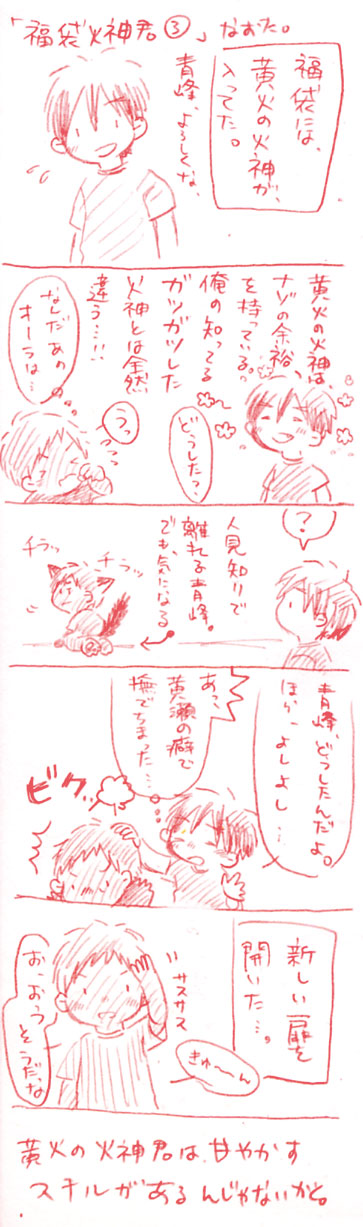 「福袋火神君③」なおた。
福袋には、
黄火の火神が、
入ってた。
青峰、よろしくな、
黄火の火神は、
ナゾの余裕、
を持っている。
俺の知ってる
ガツガツした
火神とは全然
違う…!!
どうした?
なんだあの
オーラは…
うっ
?
人見知りで
離れる青峰。
でも、気になる
チラッ
チラッ
青峰、どうしたんだよ。
ほらーよしよし…
あっ、
黄瀬の癖で
撫でちまった…
ビクッ
新しい扉を
開いた…。
サスサス
きゅ〜〜ん
おっ、おうっ
そうだ、な
黄火の火神君は、甘やかす
スキルがあるんじゃないかと。